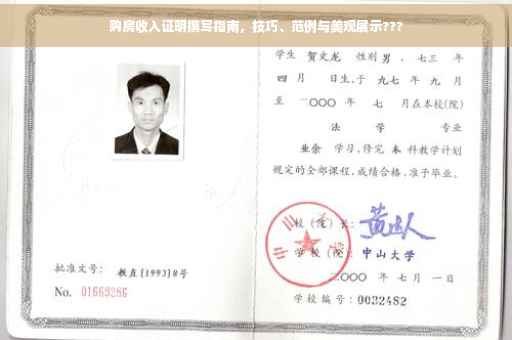 购房收入证明撰写指南，技巧、范例与美观展示???
学生 贺文龙 性别 男，七三 年
四 月 日生，于 九七 年 九 月
至 二〇〇〇 年 七 月在本校(院)
法 学 专业
业余 学习，修完 本 科教学计划
规定的全部课程，成绩合格，准予毕业。
校（院）长：
学 校（院）：中山大学
二〇〇〇 年 七 月 一 日
学校编号：0032482
批准文号： 教直[1993]8号
No. 01669286